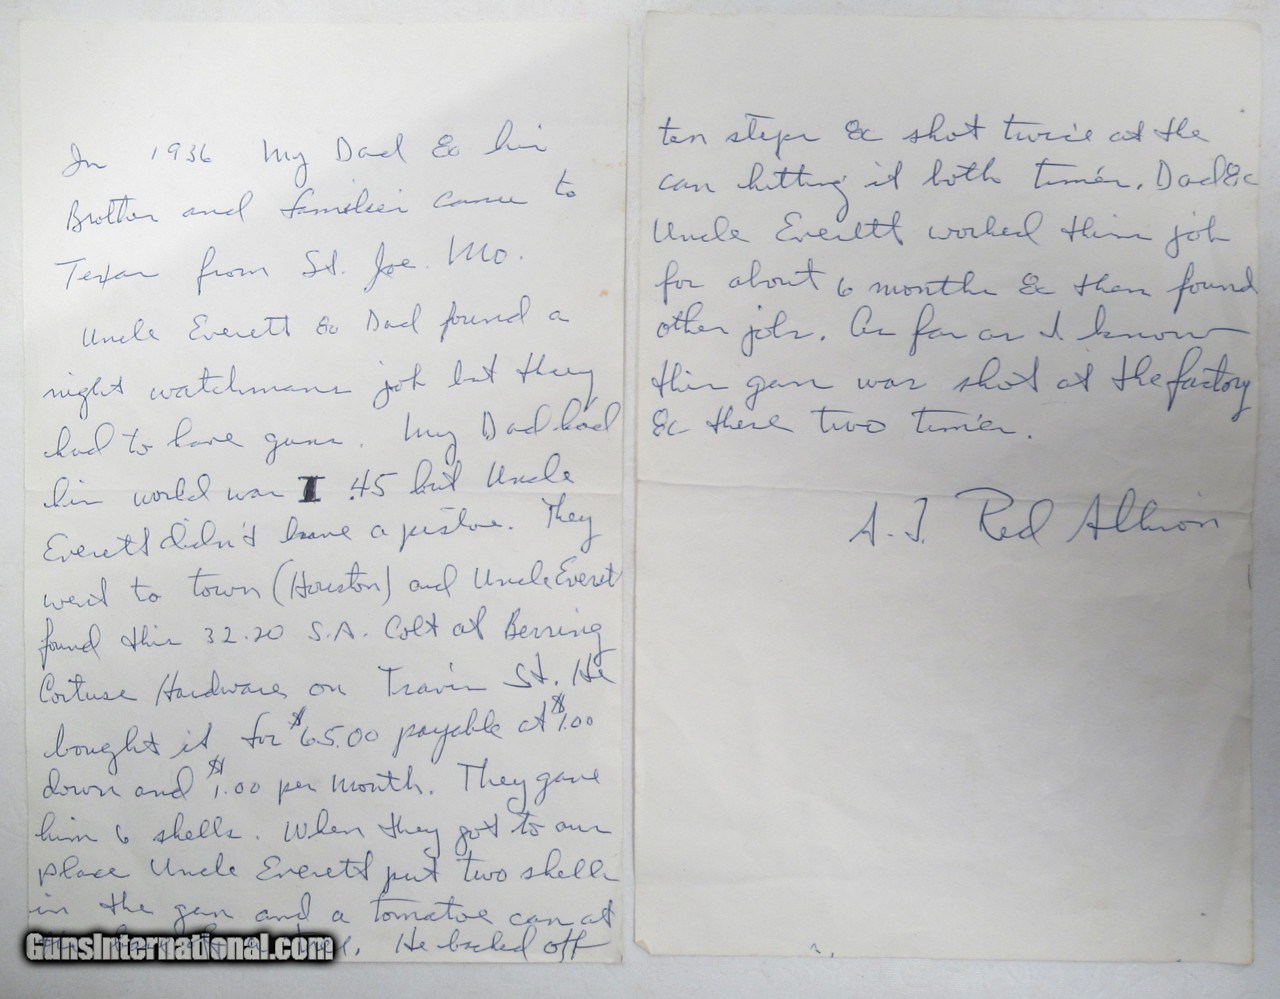 In 1936 My Dad & his
Brother and families came to
Texas from St. Joe. Mo.
Uncle Everett & Dad found a
night watchmans job but they
had to have guns. My Dad had
his world war I .45 but Uncle
Everett didn't have a pistol. They
went to town (Houston) and Uncle Everet
found this 32.20 S.A. Colt at Berring
Cortuse Hardware on Travis St. He
bought it for $65.00 payable at $1.00
down and $1.00 per month. They gave
him 6 shells. When they got to our
place Uncle Everett put two shells
in the gun and a tomatoe can at
the tree. He backed off
GunsInternational.com
ten steps & shot twice at the
can hitting it both times. Dad &
Uncle Everett worked this job
for about 6 months & then found
other jobs. As far as I know
this gun was shot at the factory
& these two times.
A. J. Red Allison